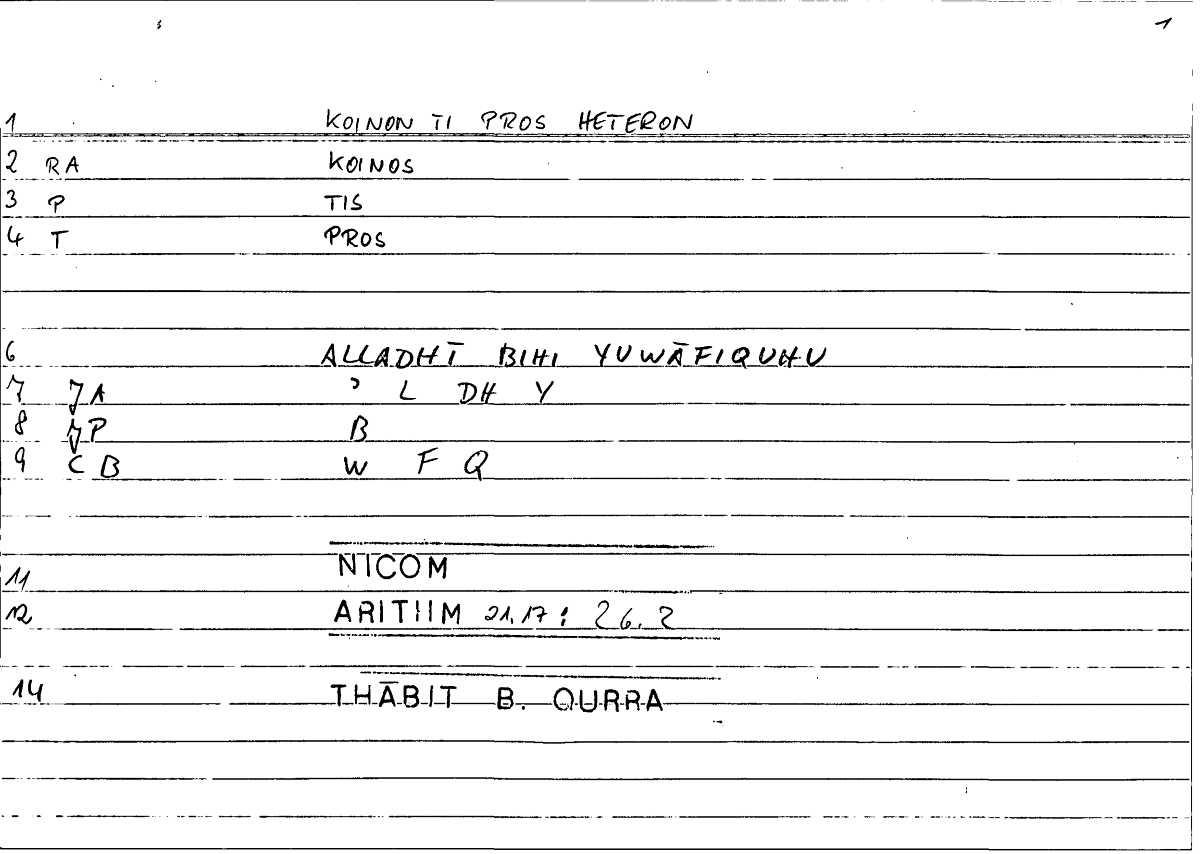 1
1 KOINON TI PROS HETERON
2 RA KOINOS
3 P TIS
4 T PROS
6 ALLADHĪ BIHI YUWĀFIQUHU
7 JA ʾ L DH Y
8 JP B
9 CB W F Q
11 NICOM
12 ARITHM 21.17 : 26.2
14 THĀBIT B. QURRA